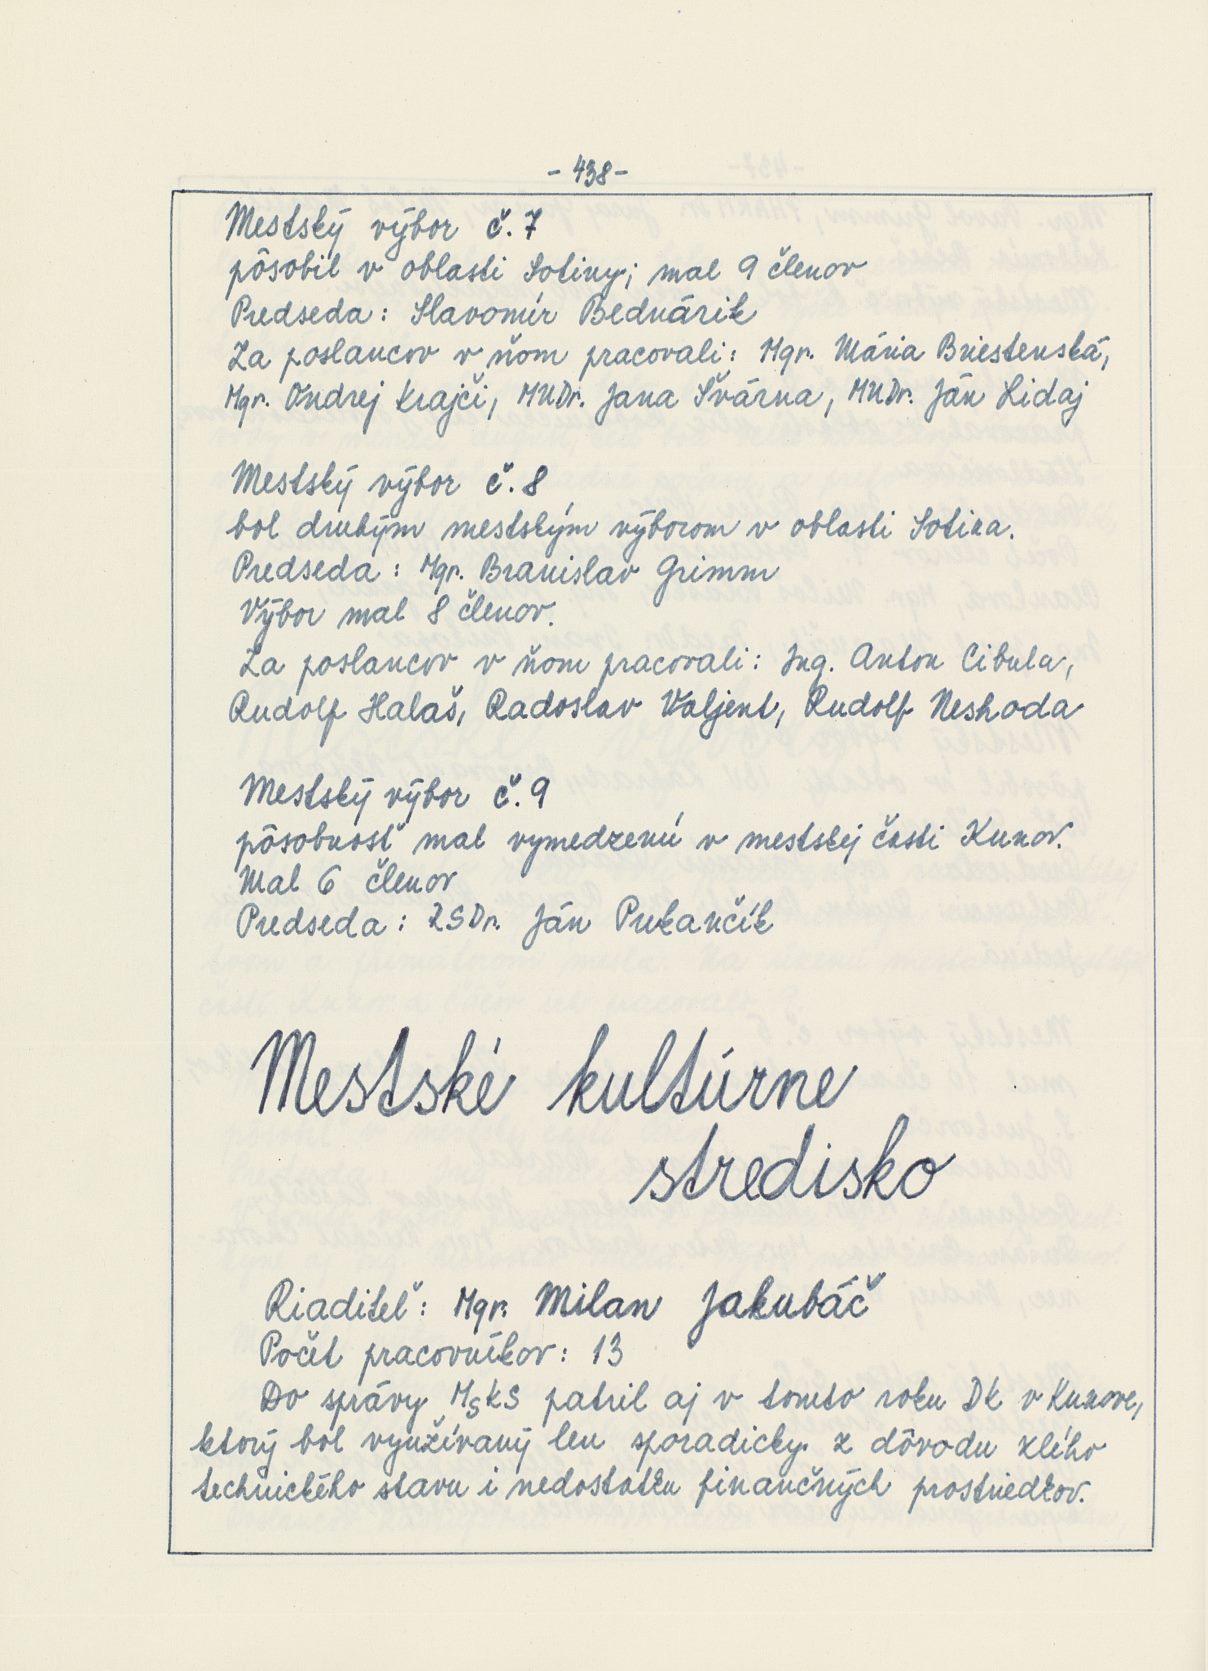 - 438 -
Mestský výbor č. 7
pôsobil v oblasti Sotiny; mal 9 členov
Predseda : Slavomír Bednárik
Za poslancov v ňom pracovali : Mgr. Mária Briestenská,
Mgr. Ondrej Krajči, MUDr. Jana Švárna, MUDr. Ján Lidaj
Mestský výbor č. 8
bol druhým mestským výborom v oblasti Sotina.
Predseda : Mgr. Branislav Grimm
Výbor mal 8 členov.
Za poslancov v ňom pracovali : Ing. Anton Cibula,
Rudolf Halaš, Radoslav Valjent, Rudolf Neshoda
Mestský výbor č. 9
pôsobnosť mal vymedzenú v mestskej časti Kunov.
Mal 6 členov
Predseda : RSDr. Ján Pukančík
Mestské kultúrne
stredisko
Riaditeľ : Mgr. Milan Jakubáč
Počet pracovníkov : 13
Do správy MsKS patril aj v tomto roku DK v Kunove,
ktorý bol využívaný len sporadicky z dôvodu zlého
technického stavu i nedostatku finančných prostriedkov.